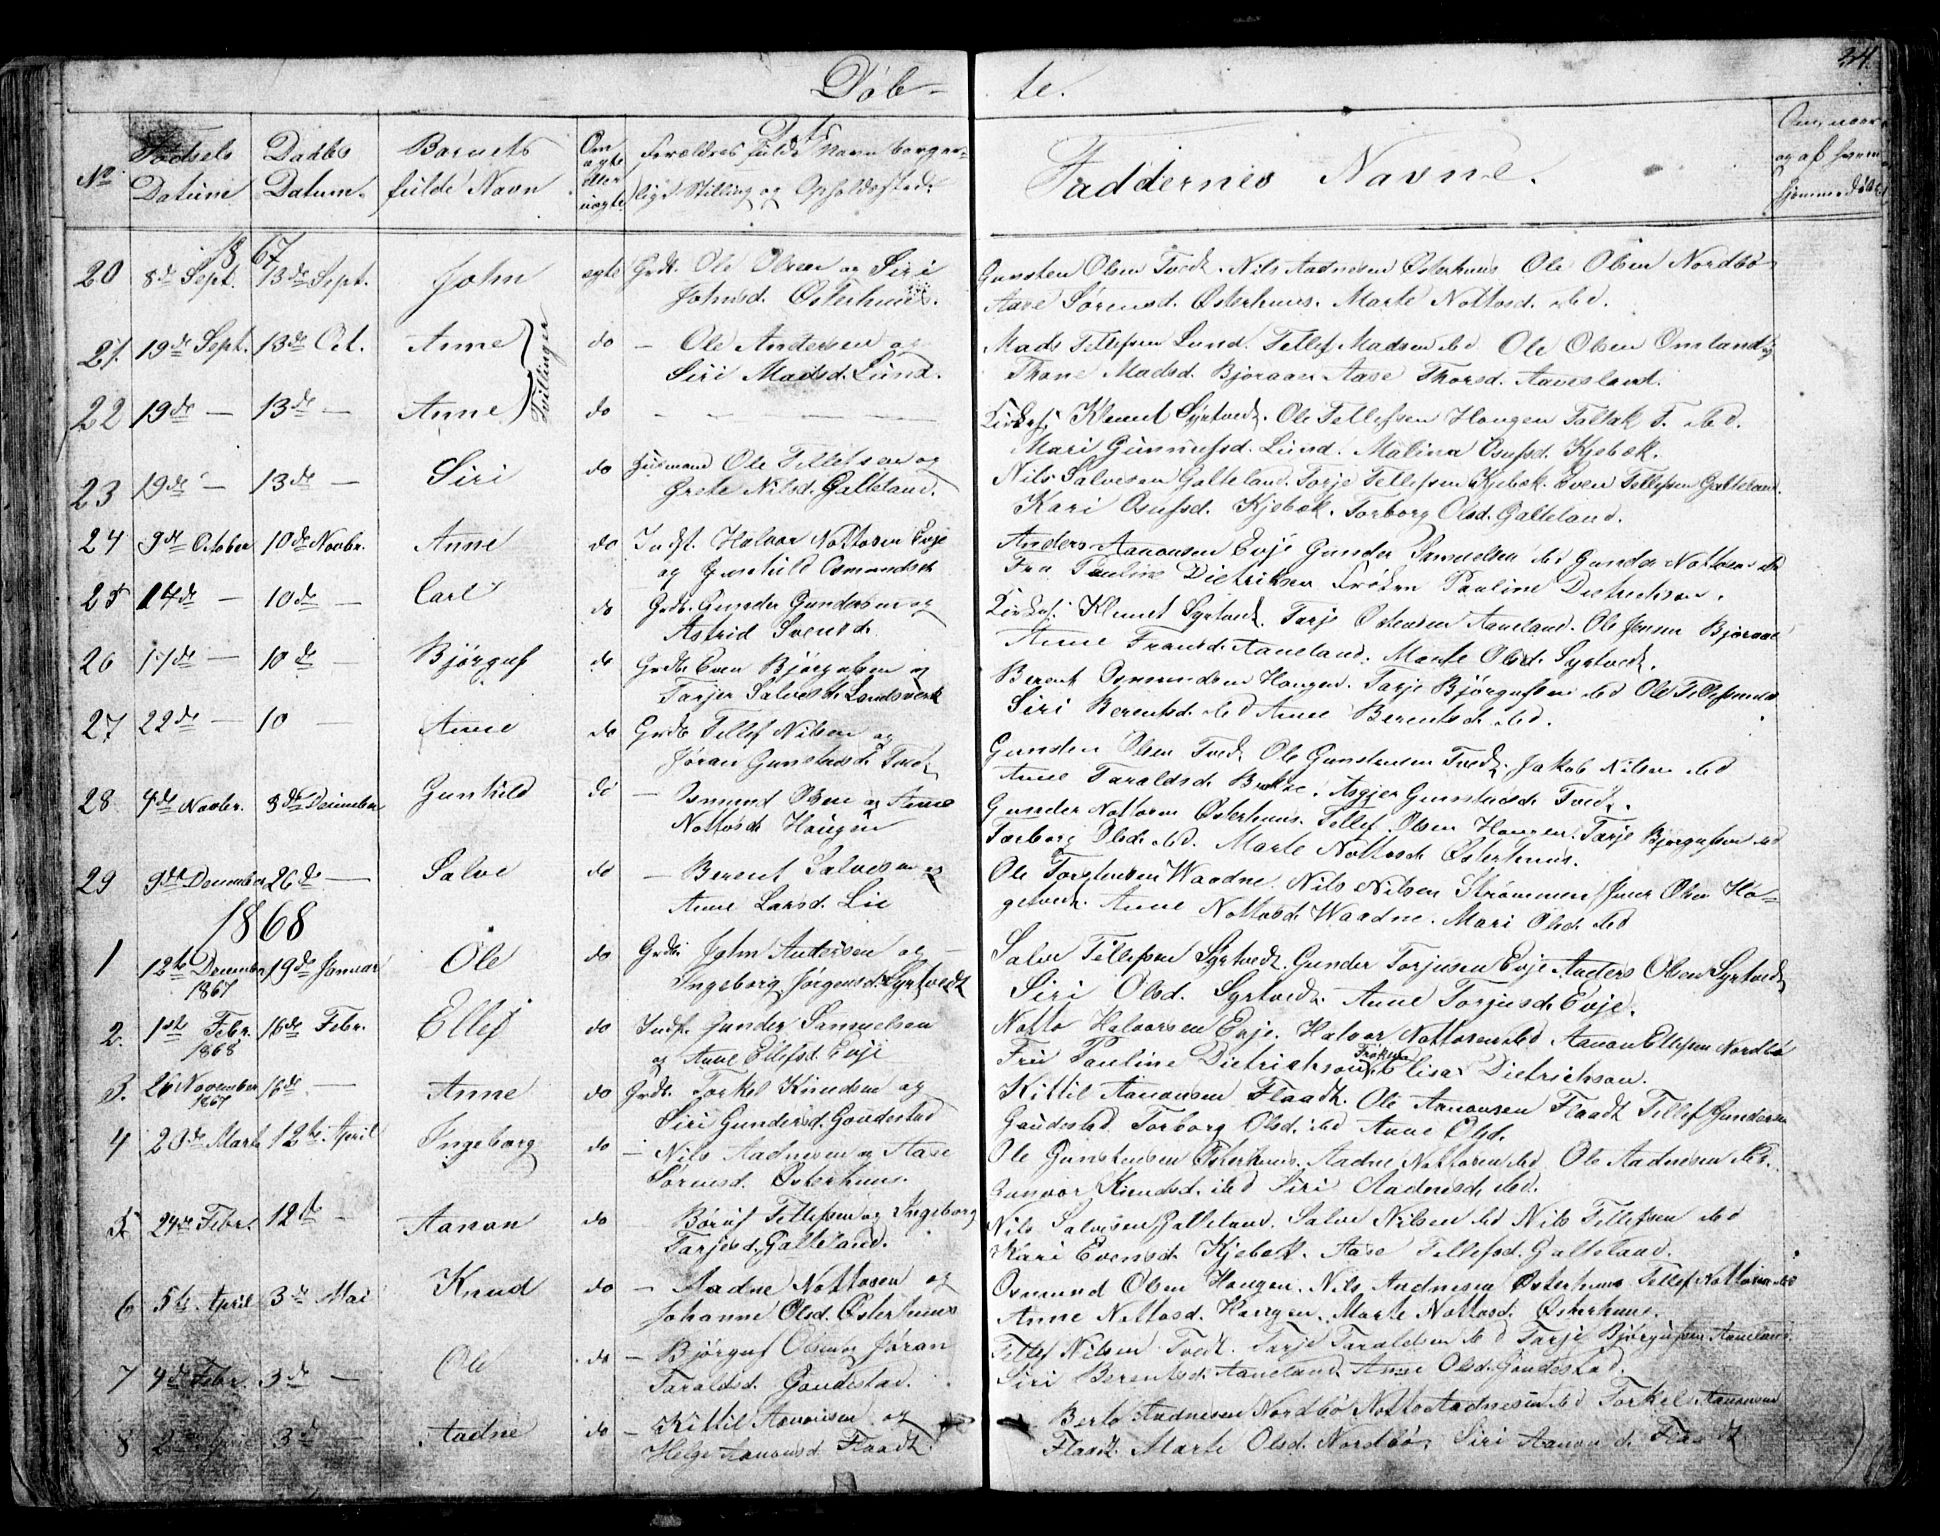 34.
Døb- te.
No
Fødsels Datum
Daabs Datum.
Barnets fulde Navn
Om ægte eller uægte
Forældres fulde Navn borgerlige Stilling og Opholdssted.
Faddernes Navne.
Om, naar og af hvem hjemmedøbt
1867
20 8de Sept. 13de Sept. John egte Grdb. Ole Olsen og Siri
Johnsd. Østerhuus.
Gunsten Olsen Tvedt. Nils Aadnesen Østerhuus Ole Olsen Nordbö
Aase Sörensd. Østerhuus. Marte Nottosd. ibd.
21. 19de Sept. 13de Oct. Anne do — Ole Andersen og
Siri Madsd. Lund.
Tvillinger
Mads Tellefsen Lund. Tellef Madsen ibd Ole Olsen Omland og
Thone Madsd. Bjoraaen Aase Thorsd. Aavesland.
22 19de — 13de — Anne do — — —
Kirkes. Klemet Syrtvedt. Ole Tellefsen Haugen Taltak T. ibd.
Mari Gunnufsd. Lund. Malina Osufsd. Kjebek.
23 19de — 13de — Siri do Huusmand Ole Tellefsen og
Grete Nilsd. Galteland.
Nils Salvesen Galteland. Torje Tellefsen Kjebek. Even Tellefsen Galteland.
Kari Osufsd. Kjebek. Torborg Olsd. Galteland.
24 9de October 10de Novbr. Anne do Indst. Halvor Nottosen Evje
og Gunhild Osmundsd.
Anders Aanonsen Evje Gunder Samuelsen ibd Gunder Nottosen ibd
Fru Pauline Dietrikson Frøken Pauline Dietrichson.
25 14de — 10de — Carl do Grdb. Gunder Gundersen og
Astrid Svensd.
Kirkes. Klemet Syrtvedt. Tarje Ostensen Aaneland. Ole Jensen Bjoraae
Anne Fransd. Aaneland. Marte Olsd. Syrtvedt.
26 17de — 10de — Bjørguf do Grdb. Even Bjørgufsen og
Tarjer Salvesd. Landsverk
Berent Osmundsen Haugen. Tarje Bjørgufsen ibd Ole Tellefsen ibd
Siri Berentsd. ibd Anne Berentsd. ibd.
27 22de — 10 — Anne do Grdb Tellef Nilsen og
Jøran Gunstensd. Tvedt
Gunsten Olsen Tvedt. Ole Gunstensen Tvedt. Jakob Nilsen ibd
Anne Taraldsd. Asgjer Gunstensd. Tvedt.
28 4de Novbr. 8de December Gunhild do — Osmund Olsen og Anne
Nottosd. Haugen
Gunder Nottosen Østerhuus. Tellef Olsen Haugen. Tarje Bjørgufsen ibd
Torborg Olsd. ibd. Marte Nottosd. Østerhuus.
29 9de December 26de — Salve do — Berent Salvesen og
Anne Larsd. Lie
Ole Torstensen Waadne. Nils Nilsen Strømmen Iver Olsen Hö-
getvedt. Anne Nottosd. Waadne. Mari Olsd. ibd
1868
1 12te December 1867 19de Januar Ole do Grdb. John Andersen og
Ingeborg Jørgensd. Syrtvedt
Salve Tellefsen Syrtvedt. Gunder Torjusen Evje Anders Olsen Syrtvedt
Siri Olsd. Syrtvedt. Anne Torjusd. Evje.
2. 1ste Febr. 1868 16de Febr. Ellef do Indst. Gunder Samuelsen
og Anne Eilefsd. Evje
Notto Halvorsen Evje. Halvor Nottosen ibd Aanon Ellefsen Nordbö
Fru Pauline Dietrichson Frøken Elisa Dietrichson.
3. 26 November 1867 16de — Anne do Grdb. Torkel Knudsen og
Siri Gundersd. Gaudestad
Kittil Aanonsen Flaadt. Ole Aanonsen Flaadt Tellef Gundersen
Gaudestad. Torborg Olsd. ibd Anne Olsd.
4 20de Marts 12te April Ingeborg do — Nils Aadnesen og Aase
Sörensd. Østerhuus.
Ole Gunstensen Østerhuus. Aadne Nottosen ibd. Ole Aadnesen ibd.
Gunvor Knudsd. ibd Siri Aadnesd. ibd.
5 24de Febr. 12te — Aanon do Børuf Tellefsen og Ingeborg
Tarjesd. Galteland.
Nils Salvesen Galteland. Salve Nilsen ibd Nils Tellefsen ibd
Kari Evensd. Kjebek. Aase Tellefsd. Galteland.
6 5te April 3de Mai Knud do — Aadne Nottosen og
Johanne Olsd. Østerhuus
Osmund Olsen Haugen. Nils Aadnesen Østerhuus Tellef Nottosen ibd
Anne Nottosd. Haugen. Marte Nottosd. Østerhuus.
7 4de Febr. 3de — Ole do — Bjørguf Olsen Jøran
Taraldsd. Gaudestad.
Tellef Nilsen Tvedt. Tarje Taraldsen ibd Tarje Bjørgufsen Aaneland.
Siri Berentsd. Aaneland. Anne Olsd. Gaudestad.
8 2den April 3de — Aadne do — Kittil Aanonsen og
Helge Aanonsd. Flaadt.
Berte Aadnesen Nordbö Notto Aadnesen ibd Torkel Aanonsen
Flaadt. Marte Olsd. Nordbö. Siri Aanonsd. Flaadt